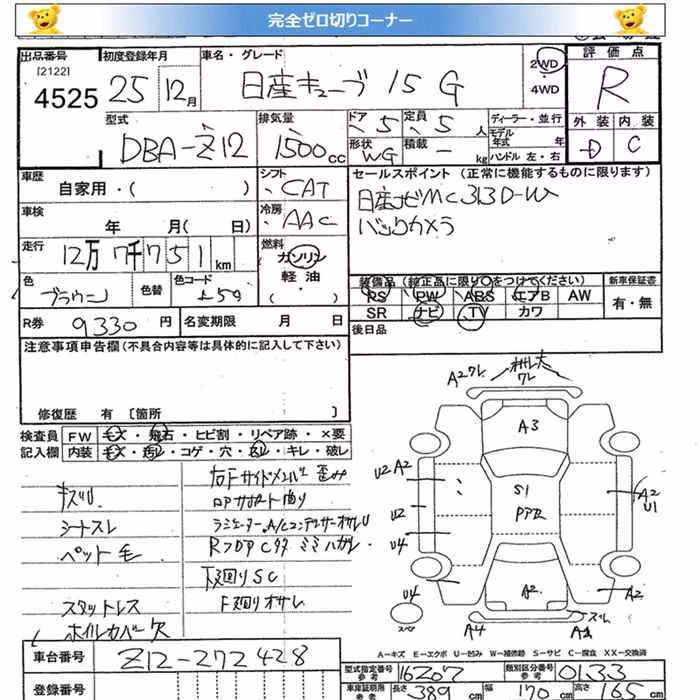 完全ゼロ切りコーナー
出品番号 初度登録年月 車名・グレード 2WD 評価点
[2122]
4525 25 12月 日産キューブ 15 G ・4WD R
型式 排気量 ドア 定員 ディーラー・並行 外装 内装
DBA-Z12 1500cc 5 5人 モデル年式 年 D C
形状 積載 ハンドル 左・右
WG - kg
車歴 シフト セールスポイント (正常に機能するものに限ります)
自家用・( ) CAT 日産ナビMC313D-W
車検 冷房 バックカメラ
年 月( 日) AAC
走行 燃料
12万7千751km ガソリン
軽油
・( )
色 色替 色コード 装備品 (純正品に限り○をつけてください) 新車保証書
ブラウン RS PW ABS エアB AW 有・無
SR ナビ TV カワ
R券 9330円 名変期限 月 日 後日品
注意事項申告欄(不具合内容等は具体的に記入して下さい)
修復歴 有 [箇所 ]
検査員 FW キズ・飛石・ヒビ割・リペア跡・×要
記入欄 内装 キズ・汚レ・コゲ・穴・スレ・キレ・破レ
キズ汚
シートスレ
ペット毛
スタットレス
ホイルカバー欠
右Fサイドメンバー歪み
ロアサポート曲り
ラジエーター.A/Cコンデンサーオサレ
RフロアCタタミミハガレ
下廻りSC
F廻りオサレ
A2ワレ
オサレ大
ワレ
A3
U2 A2
S1
A2
U1
U2
U4
U4
A2
A2
スペア
A4
スレ
A-キズ E-エクボ U-凹み W-補修跡 S-サビ C-腐食 XX-交換済
車台番号 Z12-272428
登録番号
型式指定番号 参考 16207 類別区分番号 参考 0133
車庫証明用 参考 長さ 389cm 幅 170cm 高さ 165cm